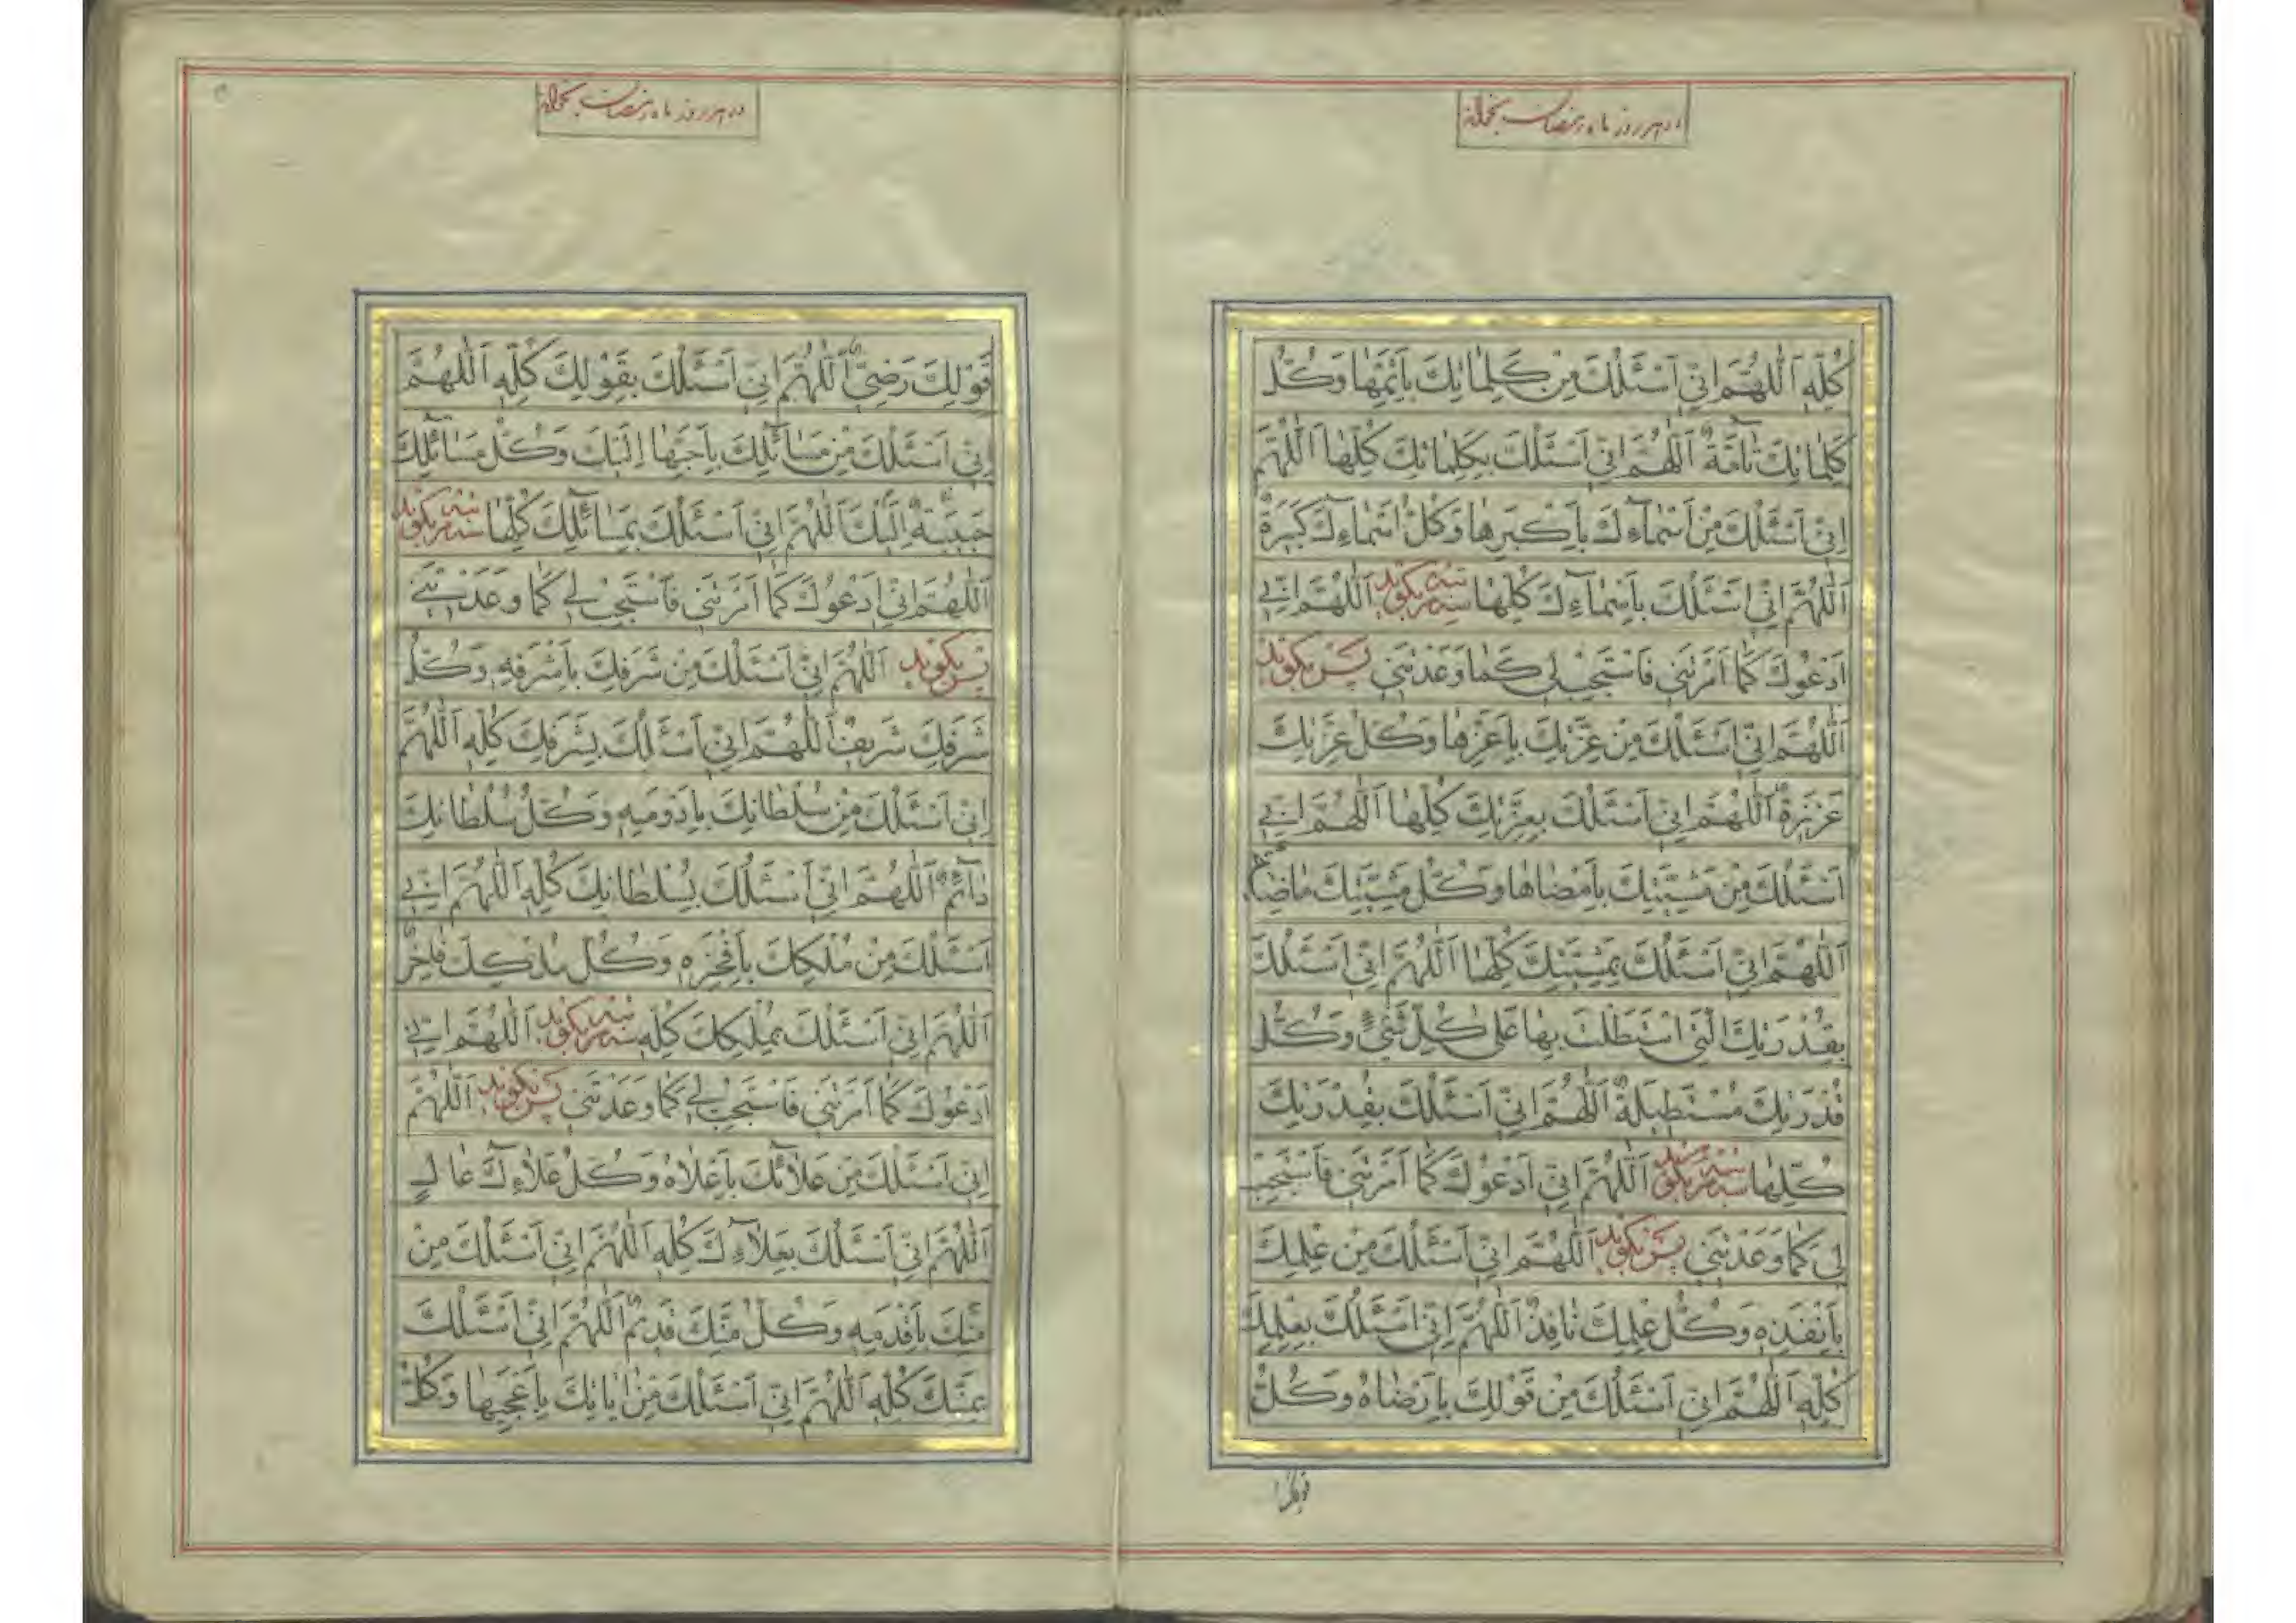 در هر روز ماه رمضان بخواند
كُلِّهِ اَللّٰهُمَّ اِنّٖى اَسْئَلُكَ مِنْ كَلِمٰاتِكَ بِاَتَمِّهٰا وَكُلُّ
كَلِمٰاتِكَ تٰآمَّةٌ اَللّٰهُمَّ اِنّٖى اَسْئَلُكَ بِكَلِمٰاتِكَ كُلِّهٰا اَللّٰهُمَّ
اِنّٖى اَسْئَلُكَ مِنْ اَسْمٰآءِكَ بِاَكْبَرِهٰا وَكُلُّ اَسْمٰآءِكَ كَبٖيرَةٌ
اَللّٰهُمَّ اِنّٖى اَسْئَلُكَ بِاَسْمٰآءِكَ كُلِّهٰا سه مرتبه بگويد اَللّٰهُمَّ اِنّٖى
اَدْعُوكَ كَمٰا اَمَرْتَنٖى فَاسْتَجِبْ لٖى كَمٰا وَعَدْتَنٖى پس بگويد
اَللّٰهُمَّ اِنّٖى اَسْئَلُكَ مِنْ عِزَّتِكَ بِاَعَزِّهٰا وَكُلُّ عِزَّتِكَ
عَزٖيزَةٌ اَللّٰهُمَّ اِنّٖى اَسْئَلُكَ بِعِزَّتِكَ كُلِّهٰا اَللّٰهُمَّ اِنّٖى
اَسْئَلُكَ مِنْ مَشِيَّتِكَ بِاَمْضٰاهٰا وَكُلُّ مَشِيَّتِكَ مٰاضِيَةٌ
اَللّٰهُمَّ اِنّٖى اَسْئَلُكَ بِمَشِيَّتِكَ كُلِّهٰا اَللّٰهُمَّ اِنّٖى اَسْئَلُكَ
بِقُدْرَتِكَ الَّتٖى اسْتَطَلْتَ بِهٰا عَلٰى كُلِّ شَىْءٍ وَكُلُّ
قُدْرَتِكَ مُسْتَطٖيلَةٌ اَللّٰهُمَّ اِنّٖى اَسْئَلُكَ بِقُدْرَتِكَ
كُلِّهٰا سه مرتبه بگويد اَللّٰهُمَّ اِنّٖى اَدْعُوكَ كَمٰا اَمَرْتَنٖى فَاسْتَجِبْ
لٖى كَمٰا وَعَدْتَنٖى پس بگويد اَللّٰهُمَّ اِنّٖى اَسْئَلُكَ مِنْ عِلْمِكَ
بِاَنْفَذِهٖ وَكُلُّ عِلْمِكَ نٰافِذٌ اَللّٰهُمَّ اِنّٖى اَسْئَلُكَ بِعِلْمِكَ
كُلِّهٖ اَللّٰهُمَّ اِنّٖى اَسْئَلُكَ مِنْ قَوْلِكَ بِاَرْضٰاهُ وَكُلُّ
قولك
در هر روز ماه رمضان بخواند
قَوْلِكَ رَضِىٌّ اَللّٰهُمَّ اِنّٖى اَسْئَلُكَ بِقَوْلِكَ كُلِّهٖ اَللّٰهُمَّ
اِنّٖى اَسْئَلُكَ مِنْ مَسٰآئِلِكَ بِاَحَبِّهٰا اِلَيْكَ وَكُلُّ مَسٰآئِلِكَ
حَبٖيبَةٌ اِلَيْكَ اَللّٰهُمَّ اِنّٖى اَسْئَلُكَ بِمَسٰآئِلِكَ كُلِّهٰا سه مرتبه بگويد
اَللّٰهُمَّ اِنّٖى اَدْعُوكَ كَمٰا اَمَرْتَنٖى فَاسْتَجِبْ لٖى كَمٰا وَعَدْتَنٖى
پس بگويد اَللّٰهُمَّ اِنّٖى اَسْئَلُكَ مِنْ شَرَفِكَ بِاَشْرَفِهٖ وَكُلُّ
شَرَفِكَ شَرٖيفٌ اَللّٰهُمَّ اِنّٖى اَسْئَلُكَ بِشَرَفِكَ كُلِّهٖ اَللّٰهُمَّ
اِنّٖى اَسْئَلُكَ مِنْ سُلْطٰانِكَ بِاَدْوَمِهٖ وَكُلُّ سُلْطٰانِكَ
دٰآئِمٌ اَللّٰهُمَّ اِنّٖى اَسْئَلُكَ بِسُلْطٰانِكَ كُلِّهٖ اَللّٰهُمَّ اِنّٖى
اَسْئَلُكَ مِنْ مُلْكِكَ بِاَفْخَرِهٖ وَكُلُّ مُلْكِكَ فٰاخِرٌ
اَللّٰهُمَّ اِنّٖى اَسْئَلُكَ بِمُلْكِكَ كُلِّهٖ سه مرتبه بگويد اَللّٰهُمَّ اِنّٖى
اَدْعُوكَ كَمٰا اَمَرْتَنٖى فَاسْتَجِبْ لٖى كَمٰا وَعَدْتَنٖى پس بگويد اَللّٰهُمَّ
اِنّٖى اَسْئَلُكَ مِنْ عَلٰآئِكَ بِاَعْلٰاهُ وَكُلُّ عَلٰآءِكَ عٰالٍ
اَللّٰهُمَّ اِنّٖى اَسْئَلُكَ بِعَلٰآءِكَ كُلِّهٖ اَللّٰهُمَّ اِنّٖى اَسْئَلُكَ مِنْ
مَنِّكَ بِاَقْدَمِهٖ وَكُلُّ مَنِّكَ قَدٖيمٌ اَللّٰهُمَّ اِنّٖى اَسْئَلُكَ
بِمَنِّكَ كُلِّهٖ اَللّٰهُمَّ اِنّٖى اَسْئَلُكَ مِنْ اٰيٰاتِكَ بِاَعْجَبِهٰا وَكُلُّ